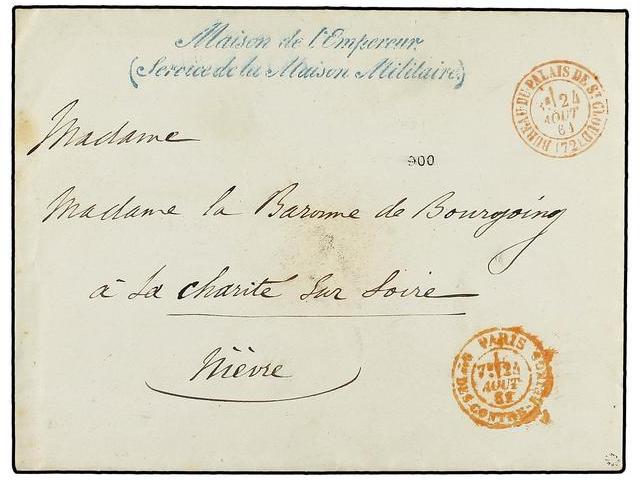 Maison de l'Empereur
(Service de la Maison Militaire)
BUREAU DU PALAIS DE St CLOUD (72)
24
AOUT
61
Madame
900
Madame la Baronne de Bourgoing
à La charité sur Loire
Nièvre
PARIS
24
AOUT